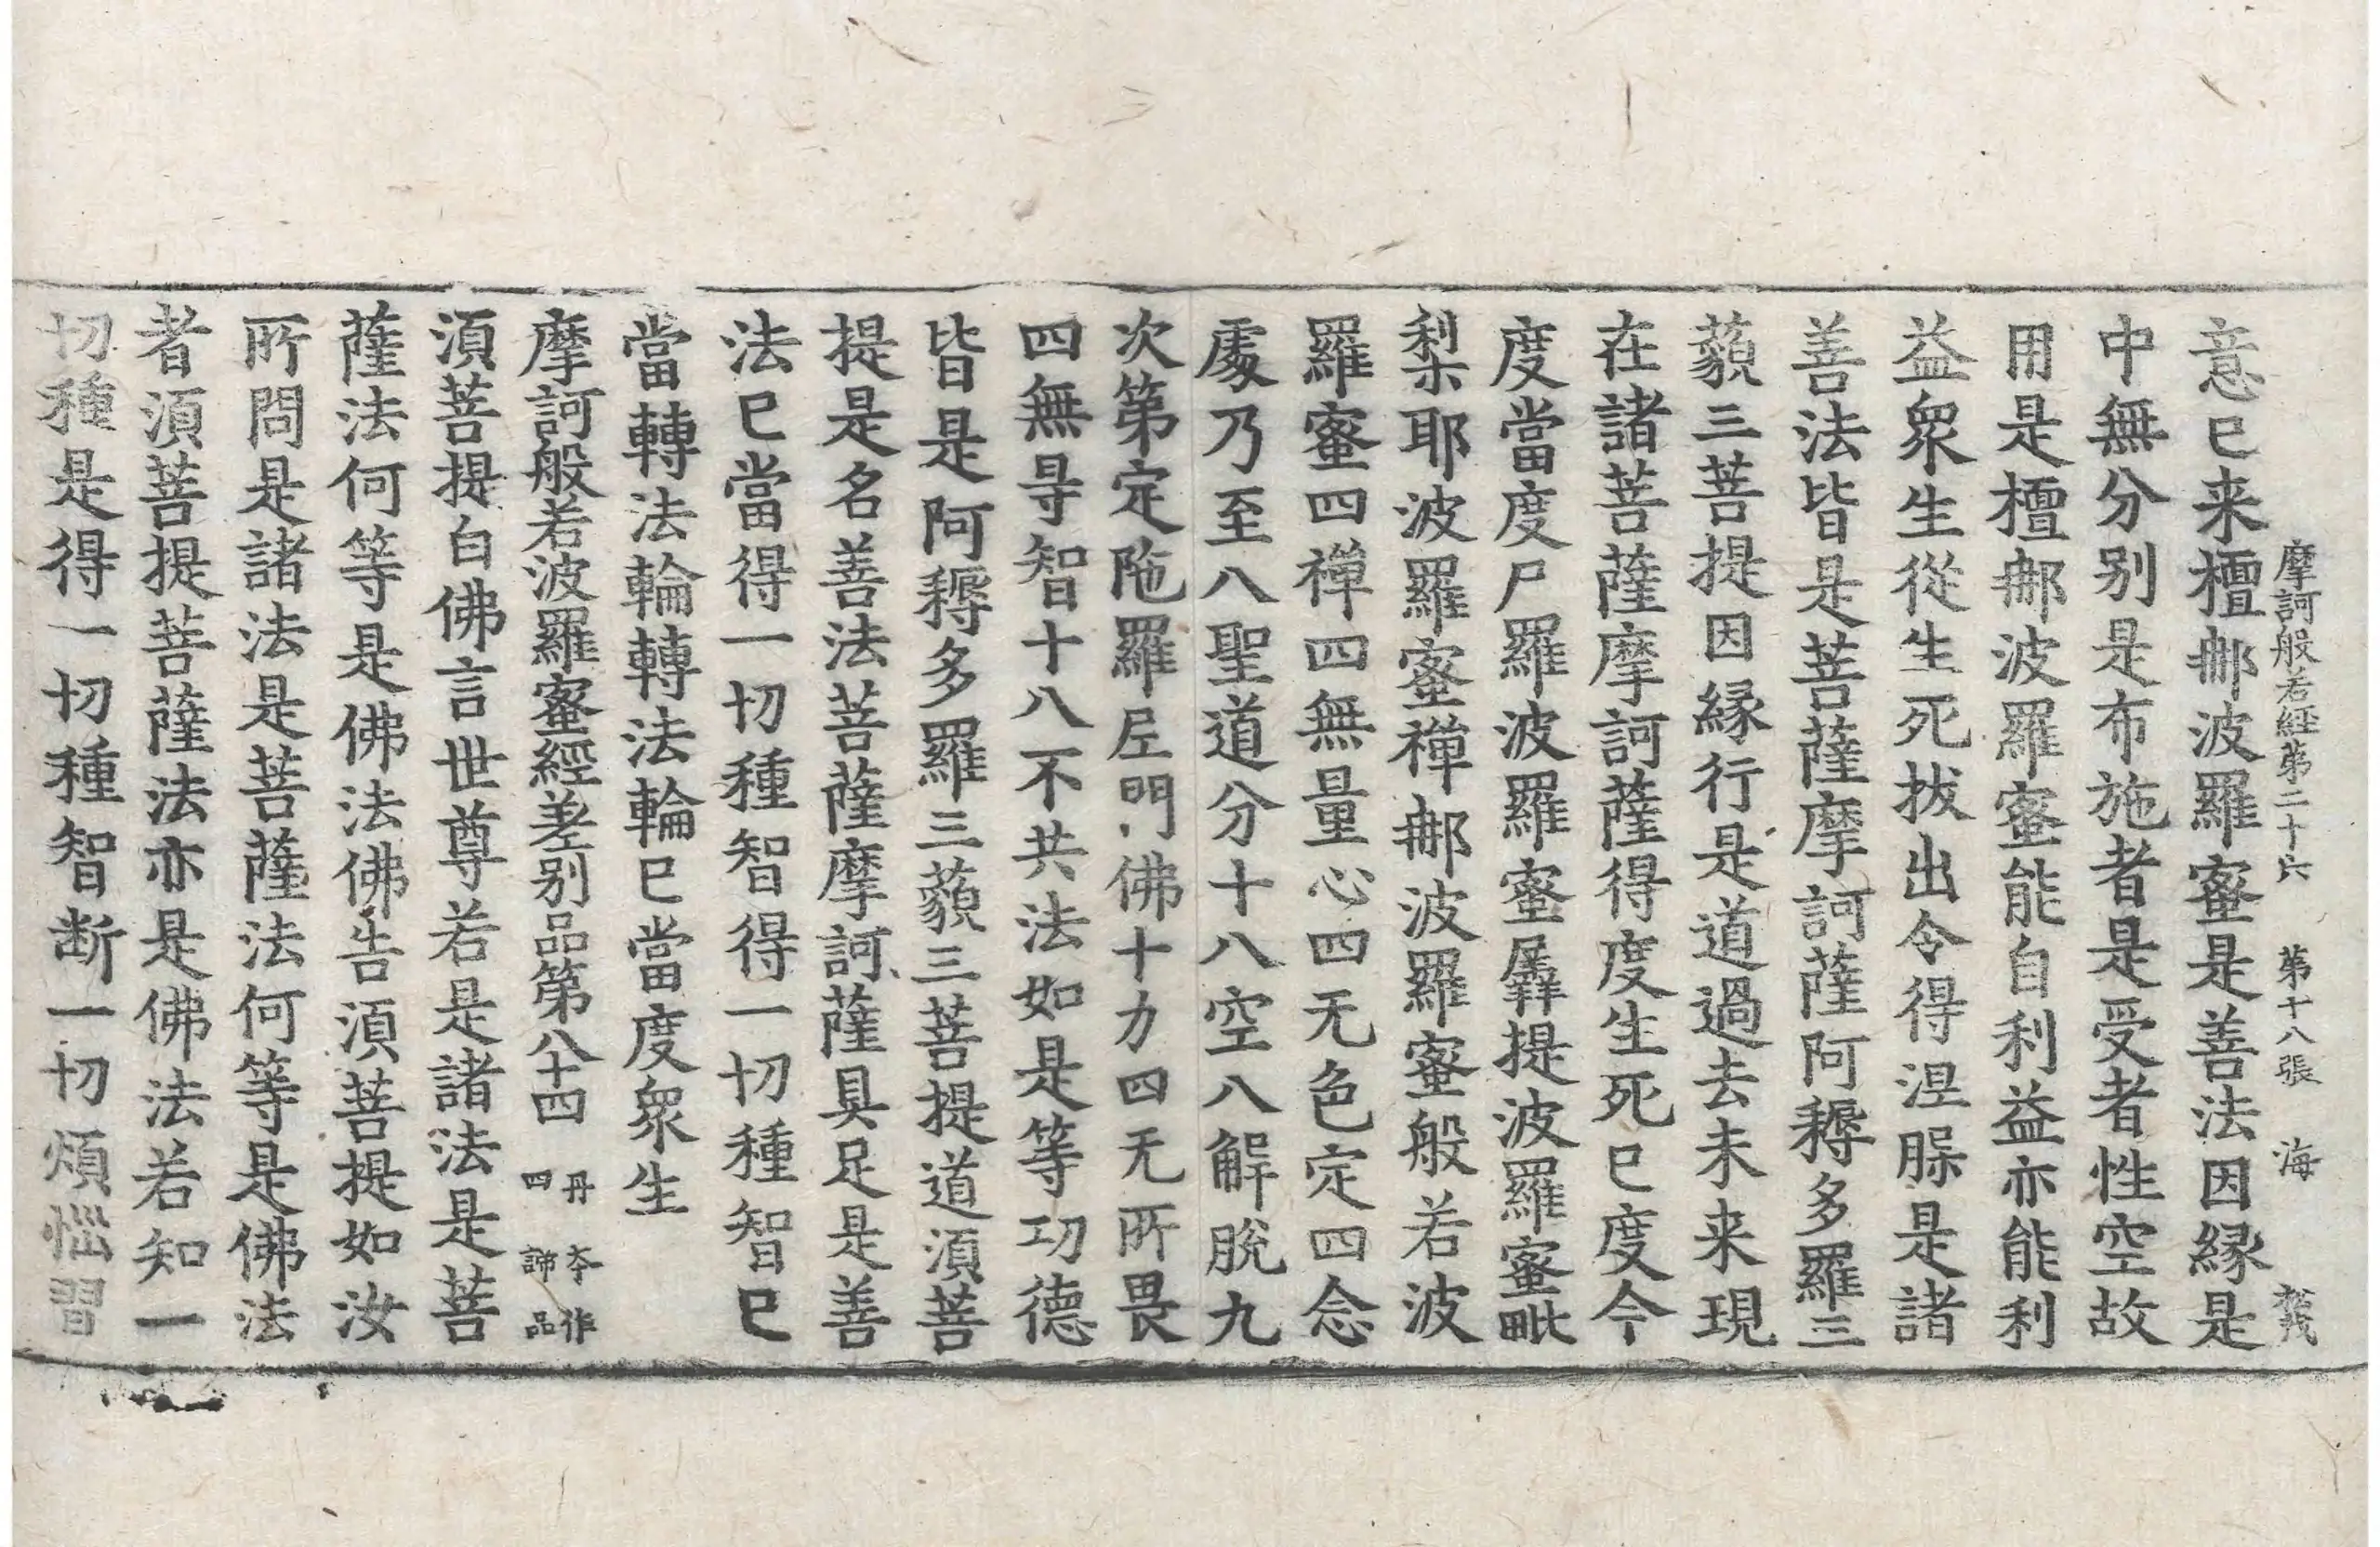 摩訶般若經第二十六　第十八張　海
意已来檀𨚗波羅蜜是善法因縁是
中無分別是布施者是受者性空故
用是檀𨚗波羅蜜能自利益亦能利
益衆生從生死拔出令得涅脲是諸
善法皆是菩薩摩訶薩阿耨多羅三
藐三菩提因縁行是道過去未来現
在諸菩薩摩訶薩得度生死已度今
度當度尸羅波羅蜜羼提波羅蜜毗
梨耶波羅蜜禪𨚗波羅蜜般若波
羅蜜四禪四無量心四无色定四念
處乃至八聖道分十八空八解脫九
次第定陁羅尼門佛十力四无所畏
四無㝵智十八不共法如是等功德
皆是阿耨多羅三藐三菩提道須菩
提是名善法菩薩摩訶薩具足是善
法已當得一切種智得一切種智已
當轉法輪轉法輪已當度衆生
摩訶般若波羅蜜經差別品第八十四　丹夲作四諦品
須菩提白佛言世尊若是諸法是菩
薩法何等是佛法佛告須菩提如汝
所問是諸法是菩薩法何等是佛法
者須菩提菩薩法亦是佛法若知一
切種是得一切種智断一切煩惱習